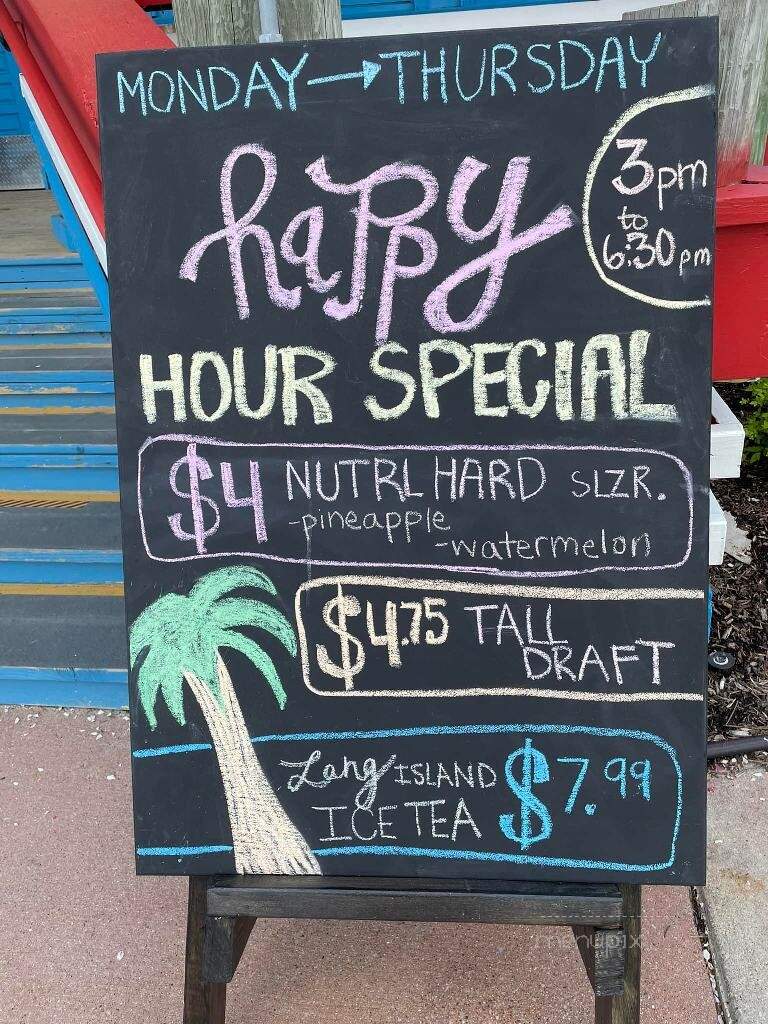 MONDAY → THURSDAY
3pm
to
6:30pm
happy
HOUR SPECIAL
$4 NUTRL HARD SLZR.
-pineapple
-watermelon
$4.75 TALL
DRAFT
Long ISLAND
ICE TEA $7.99
menupix